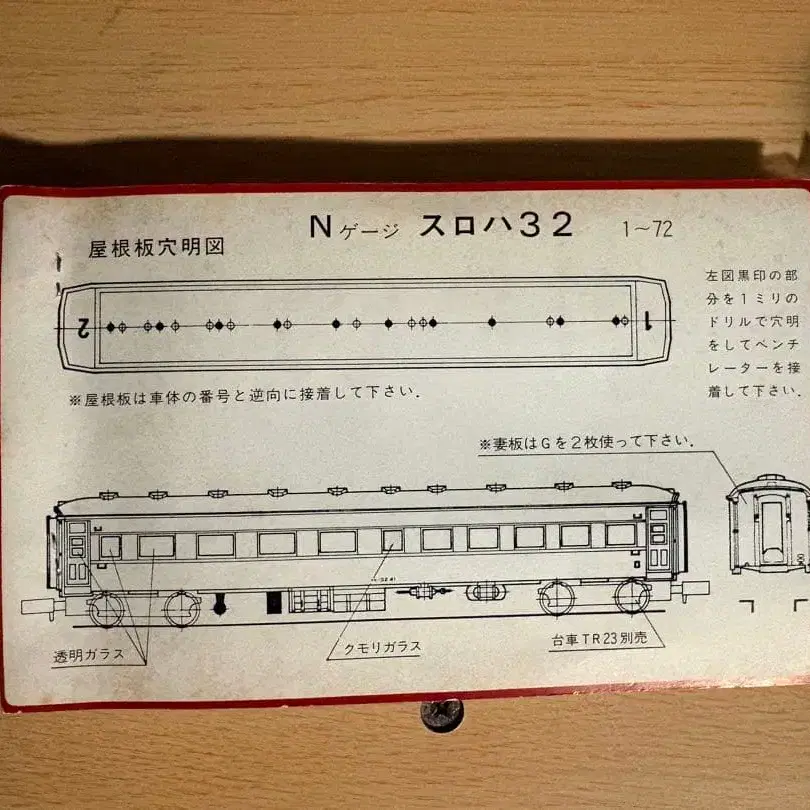 Nゲージ スロハ32 1~72
屋根板穴明図
2 1
左図黒印の部
分を1ミリの
ドリルで穴明
をしてベンチ
レーターを接
着して下さい.
※屋根板は車体の番号と逆向に接着して下さい.
※妻板はGを2枚使って下さい.
透明ガラス
クモリガラス
台車TR23別売